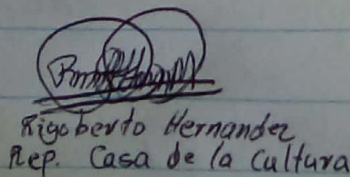 Rigoberto Hernandez
Rep. Casa de la Cultura